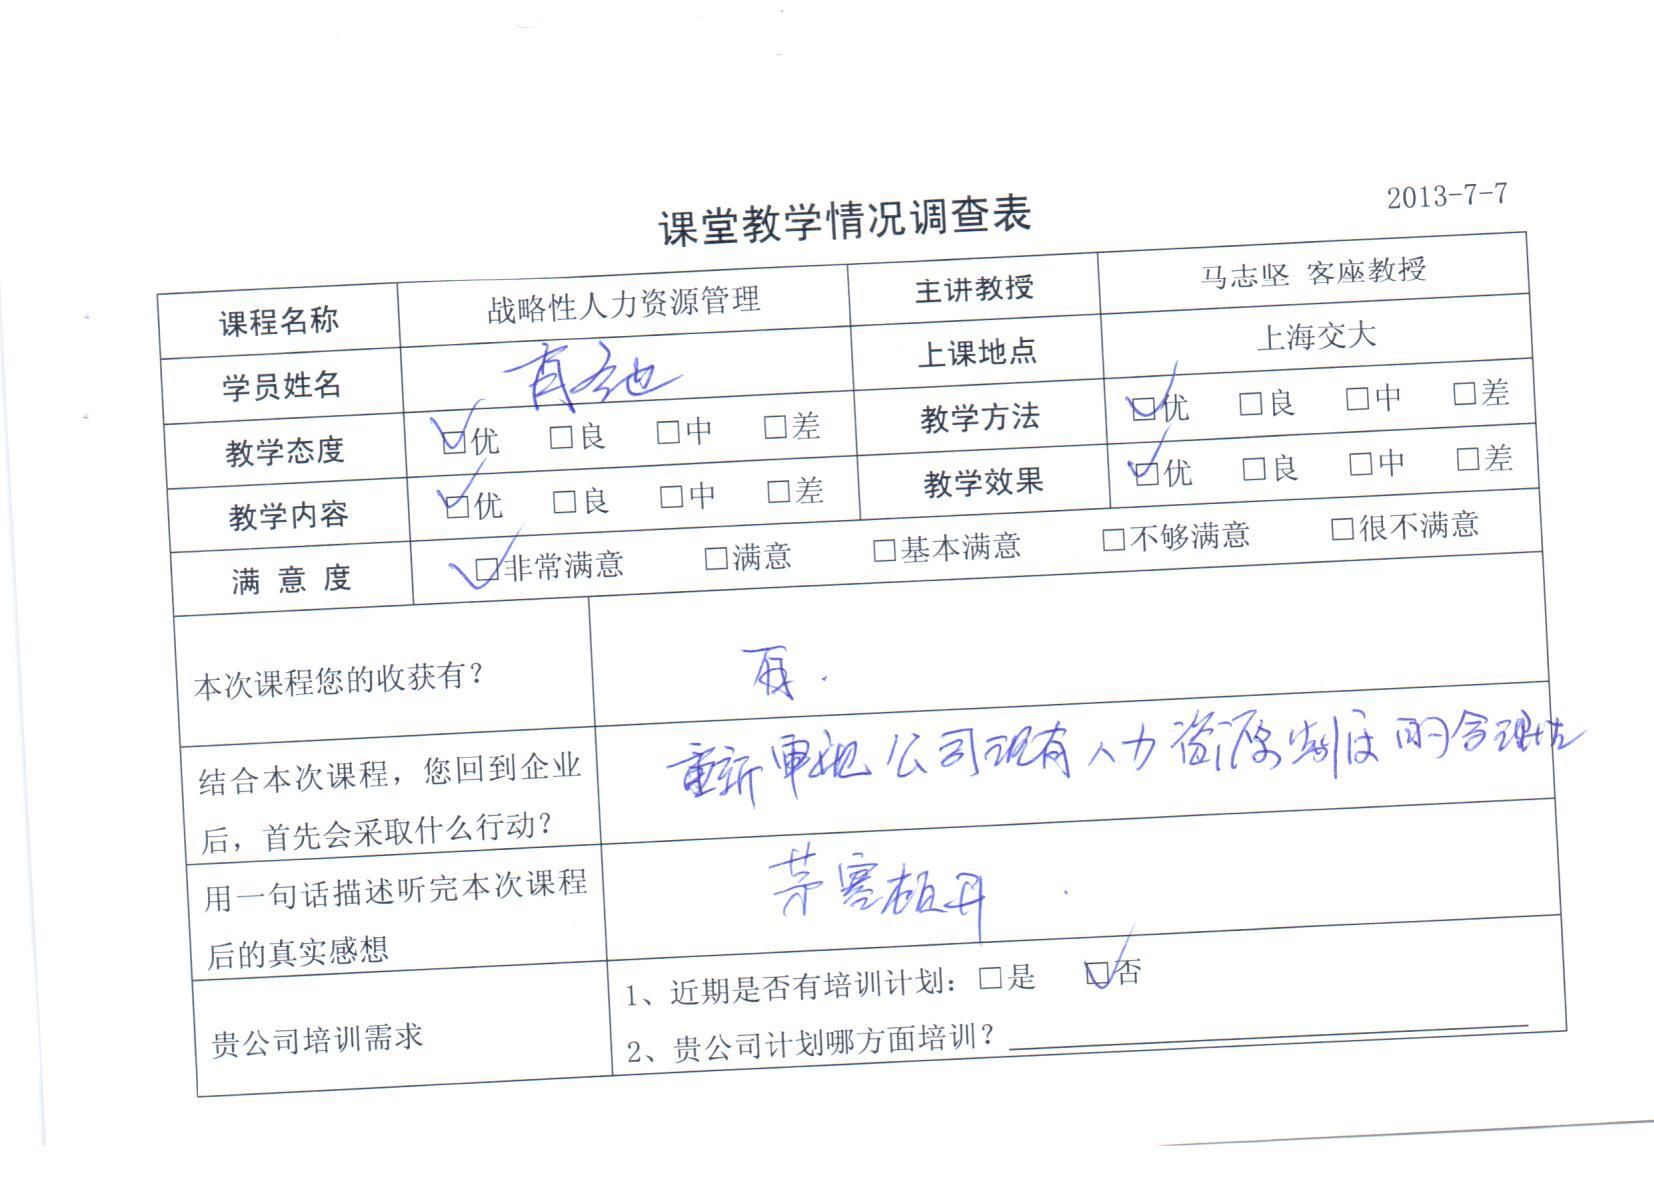 2013-7-7
课堂教学情况调查表
课程名称 战略性人力资源管理 主讲教授 马志坚 客座教授
学员姓名 上课地点 上海交大
教学态度 ☑优 □良 □中 □差 教学方法 ☑优 □良 □中 □差
教学内容 ☑优 □良 □中 □差 教学效果 ☑优 □良 □中 □差
满意度 ☑非常满意 □满意 □基本满意 □不够满意 □很不满意
本次课程您的收获有？ 有.
结合本次课程，您回到企业
后，首先会采取什么行动？
重新审视公司现有人力资源制度的合理性
用一句话描述听完本次课程
后的真实感想
茅塞顿开.
贵公司培训需求
1、近期是否有培训计划：□是 ☑否
2、贵公司计划哪方面培训？